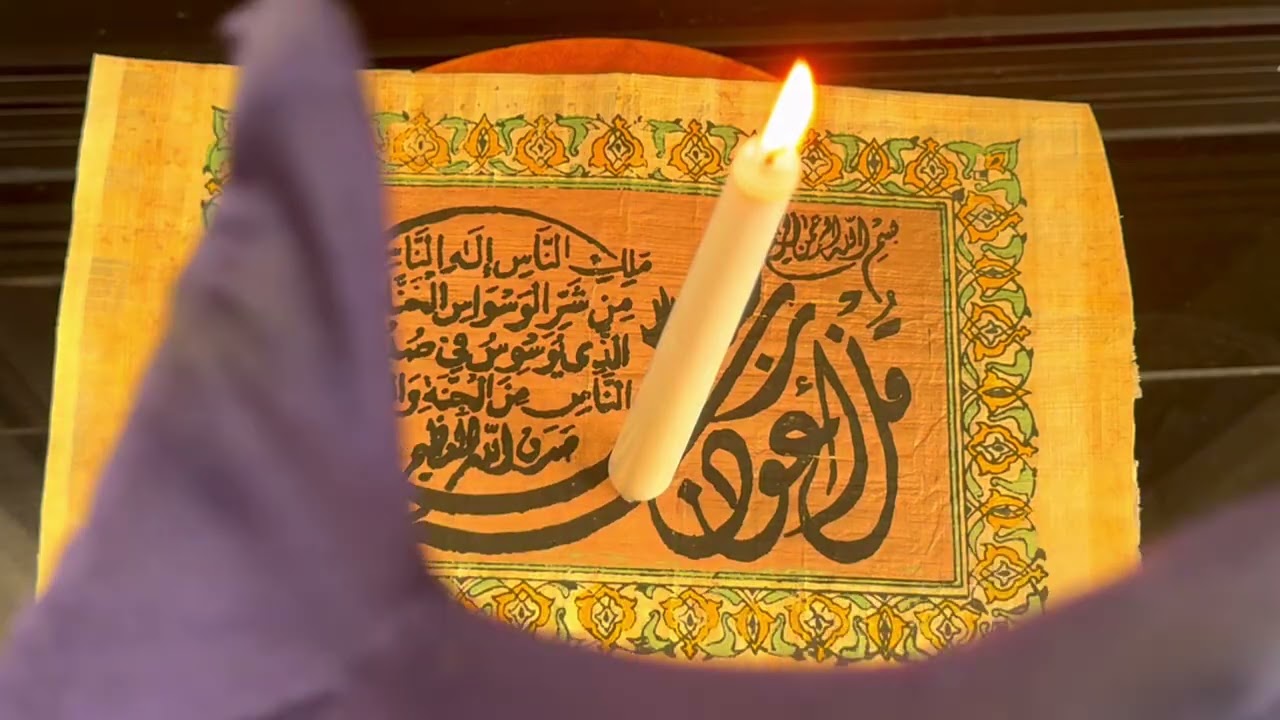 بِسْمِ اللهِ الرَّحْمٰنِ
قُلْ أَعُوذُ بِرَبِّ
مَلِكِ النَّاسِ إِلَهِ النَّاسِ
مِنْ شَرِّ الْوَسْوَاسِ
الَّذِي يُوَسْوِسُ فِي
النَّاسِ مِنَ الْجِنَّةِ
صَدَقَ اللهُ الْعَظِيمُ